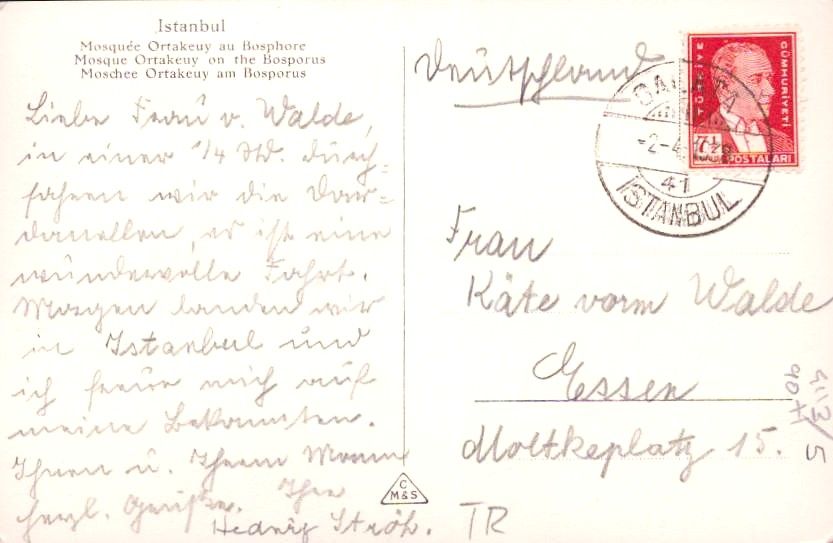 Istanbul
Mosquée Ortakeuy au Bosphore
Mosque Ortakeuy on the Bosporus
Moschee Ortakeuy am Bosporus
Liebe Frau v. Walde,
in einer 1/4 Std. durch=
fahren wir die Dar=
danellen, es ist eine
wundervolle Fahrt.
Morgen landen wir
in Istanbul und
ich freue mich auf
meine Bekannten.
Ihnen u. Ihrem Mann
herzl. Grüße. Ihre
Hedwig Ströh.
C
M&S
Deutschland
GALATA
-2-4
41
ISTANBUL
CÜMHURİYETİ
7½
POSTALARI
Frau
Käte vorm Walde
Essen
Moltkeplatz 15.
TR